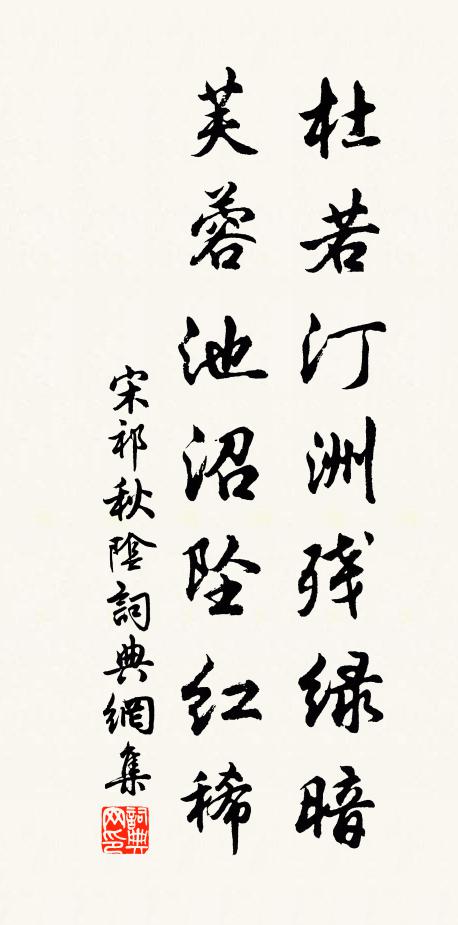 杜若汀洲残绿暗
芙蓉池沼坠红稀
宋祁秋陰詞典網集
詞典网印